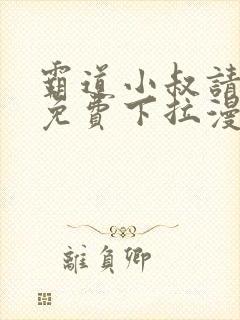 霸道小叔請
免費下拉漫
離負卿